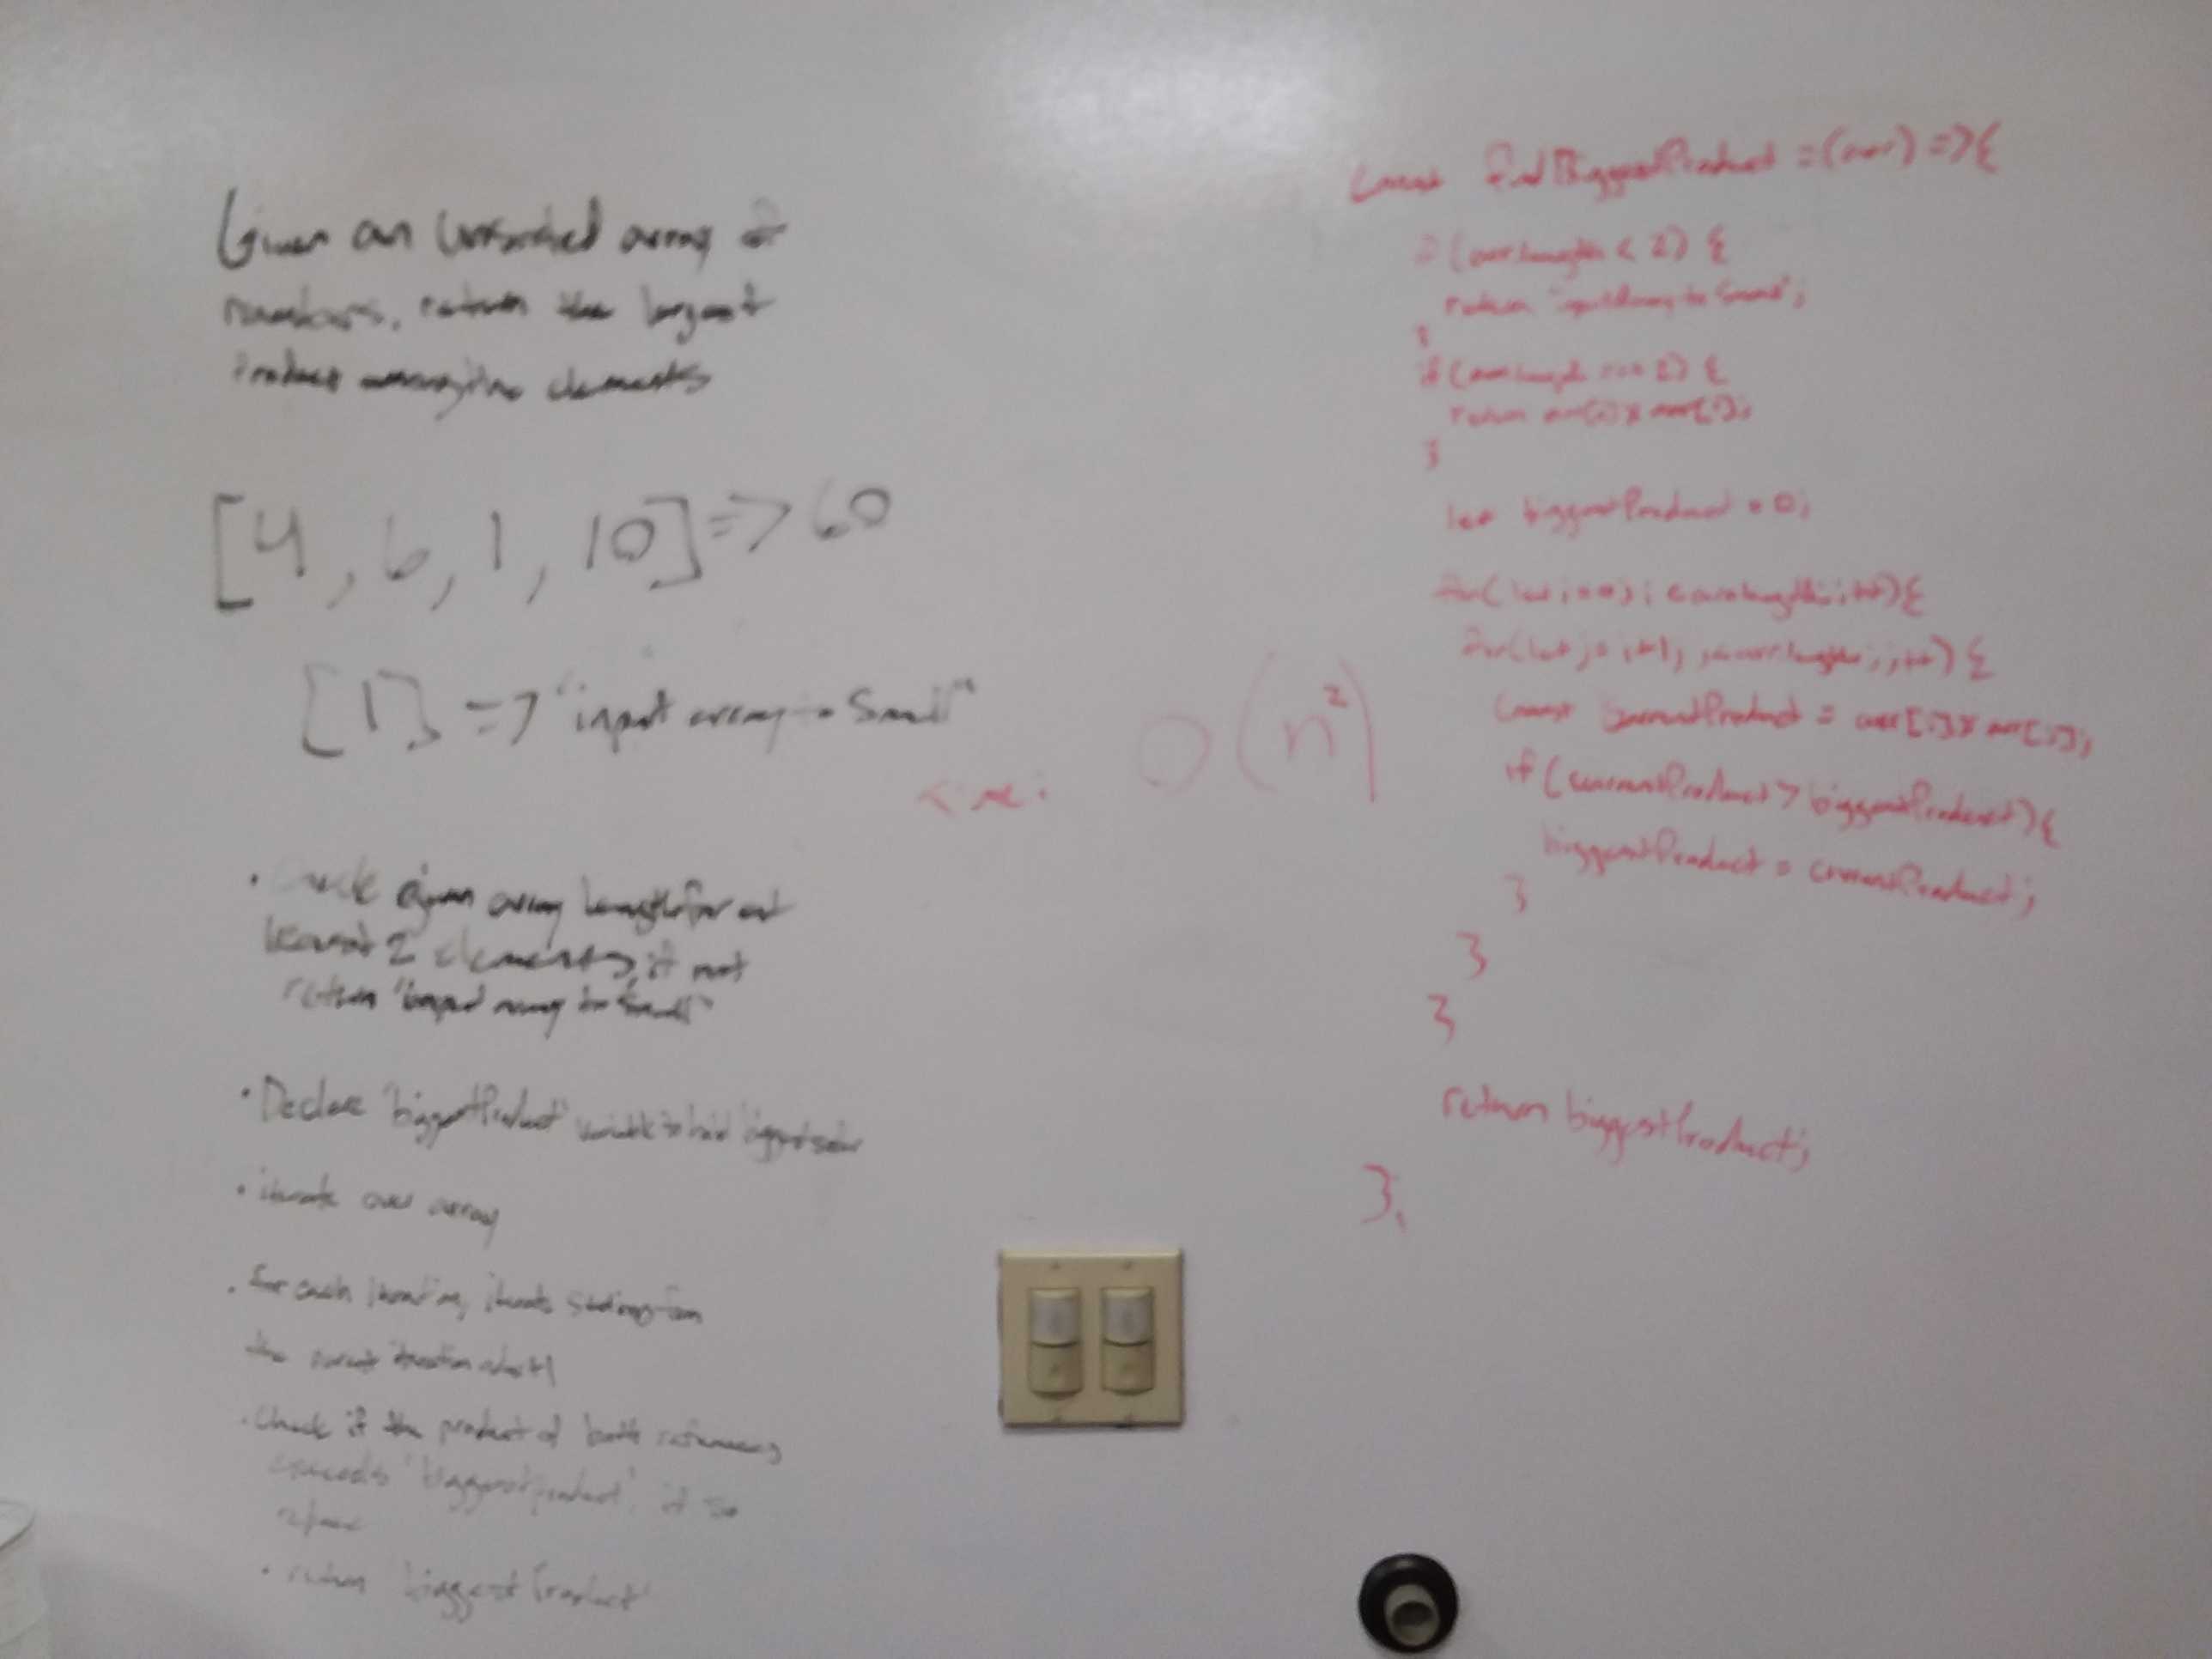 Given an unsorted array of
numbers, return the largest
Product among two elements
[4, 6, 1, 10] => 60
[1] => "input array to Small"
time: O(n²)
• Check given array length for at
least 2 elements, if not
return "input array to Small"
• Declare 'biggestProduct' variable to hold biggest
• iterate over array
• for each iteration, iterate starting from
the current iteration
• Check if the product of both references
exceeds 'biggestProduct', if so
• return 'biggestProduct'
const findBiggestProduct = (arr) => {
if (arr.length < 2) {
return "input Array to Small";
}
if (arr.length === 2) {
return arr[0] * arr[1];
}
let biggestProduct = 0;
for(let i=0; i < arr.length; i++){
for(let j=i+1; j<arr.length; j++) {
const currentProduct = arr[i] * arr[j];
if (currentProduct > biggestProduct){
biggestProduct = currentProduct;
}
}
}
return biggestProduct;
};